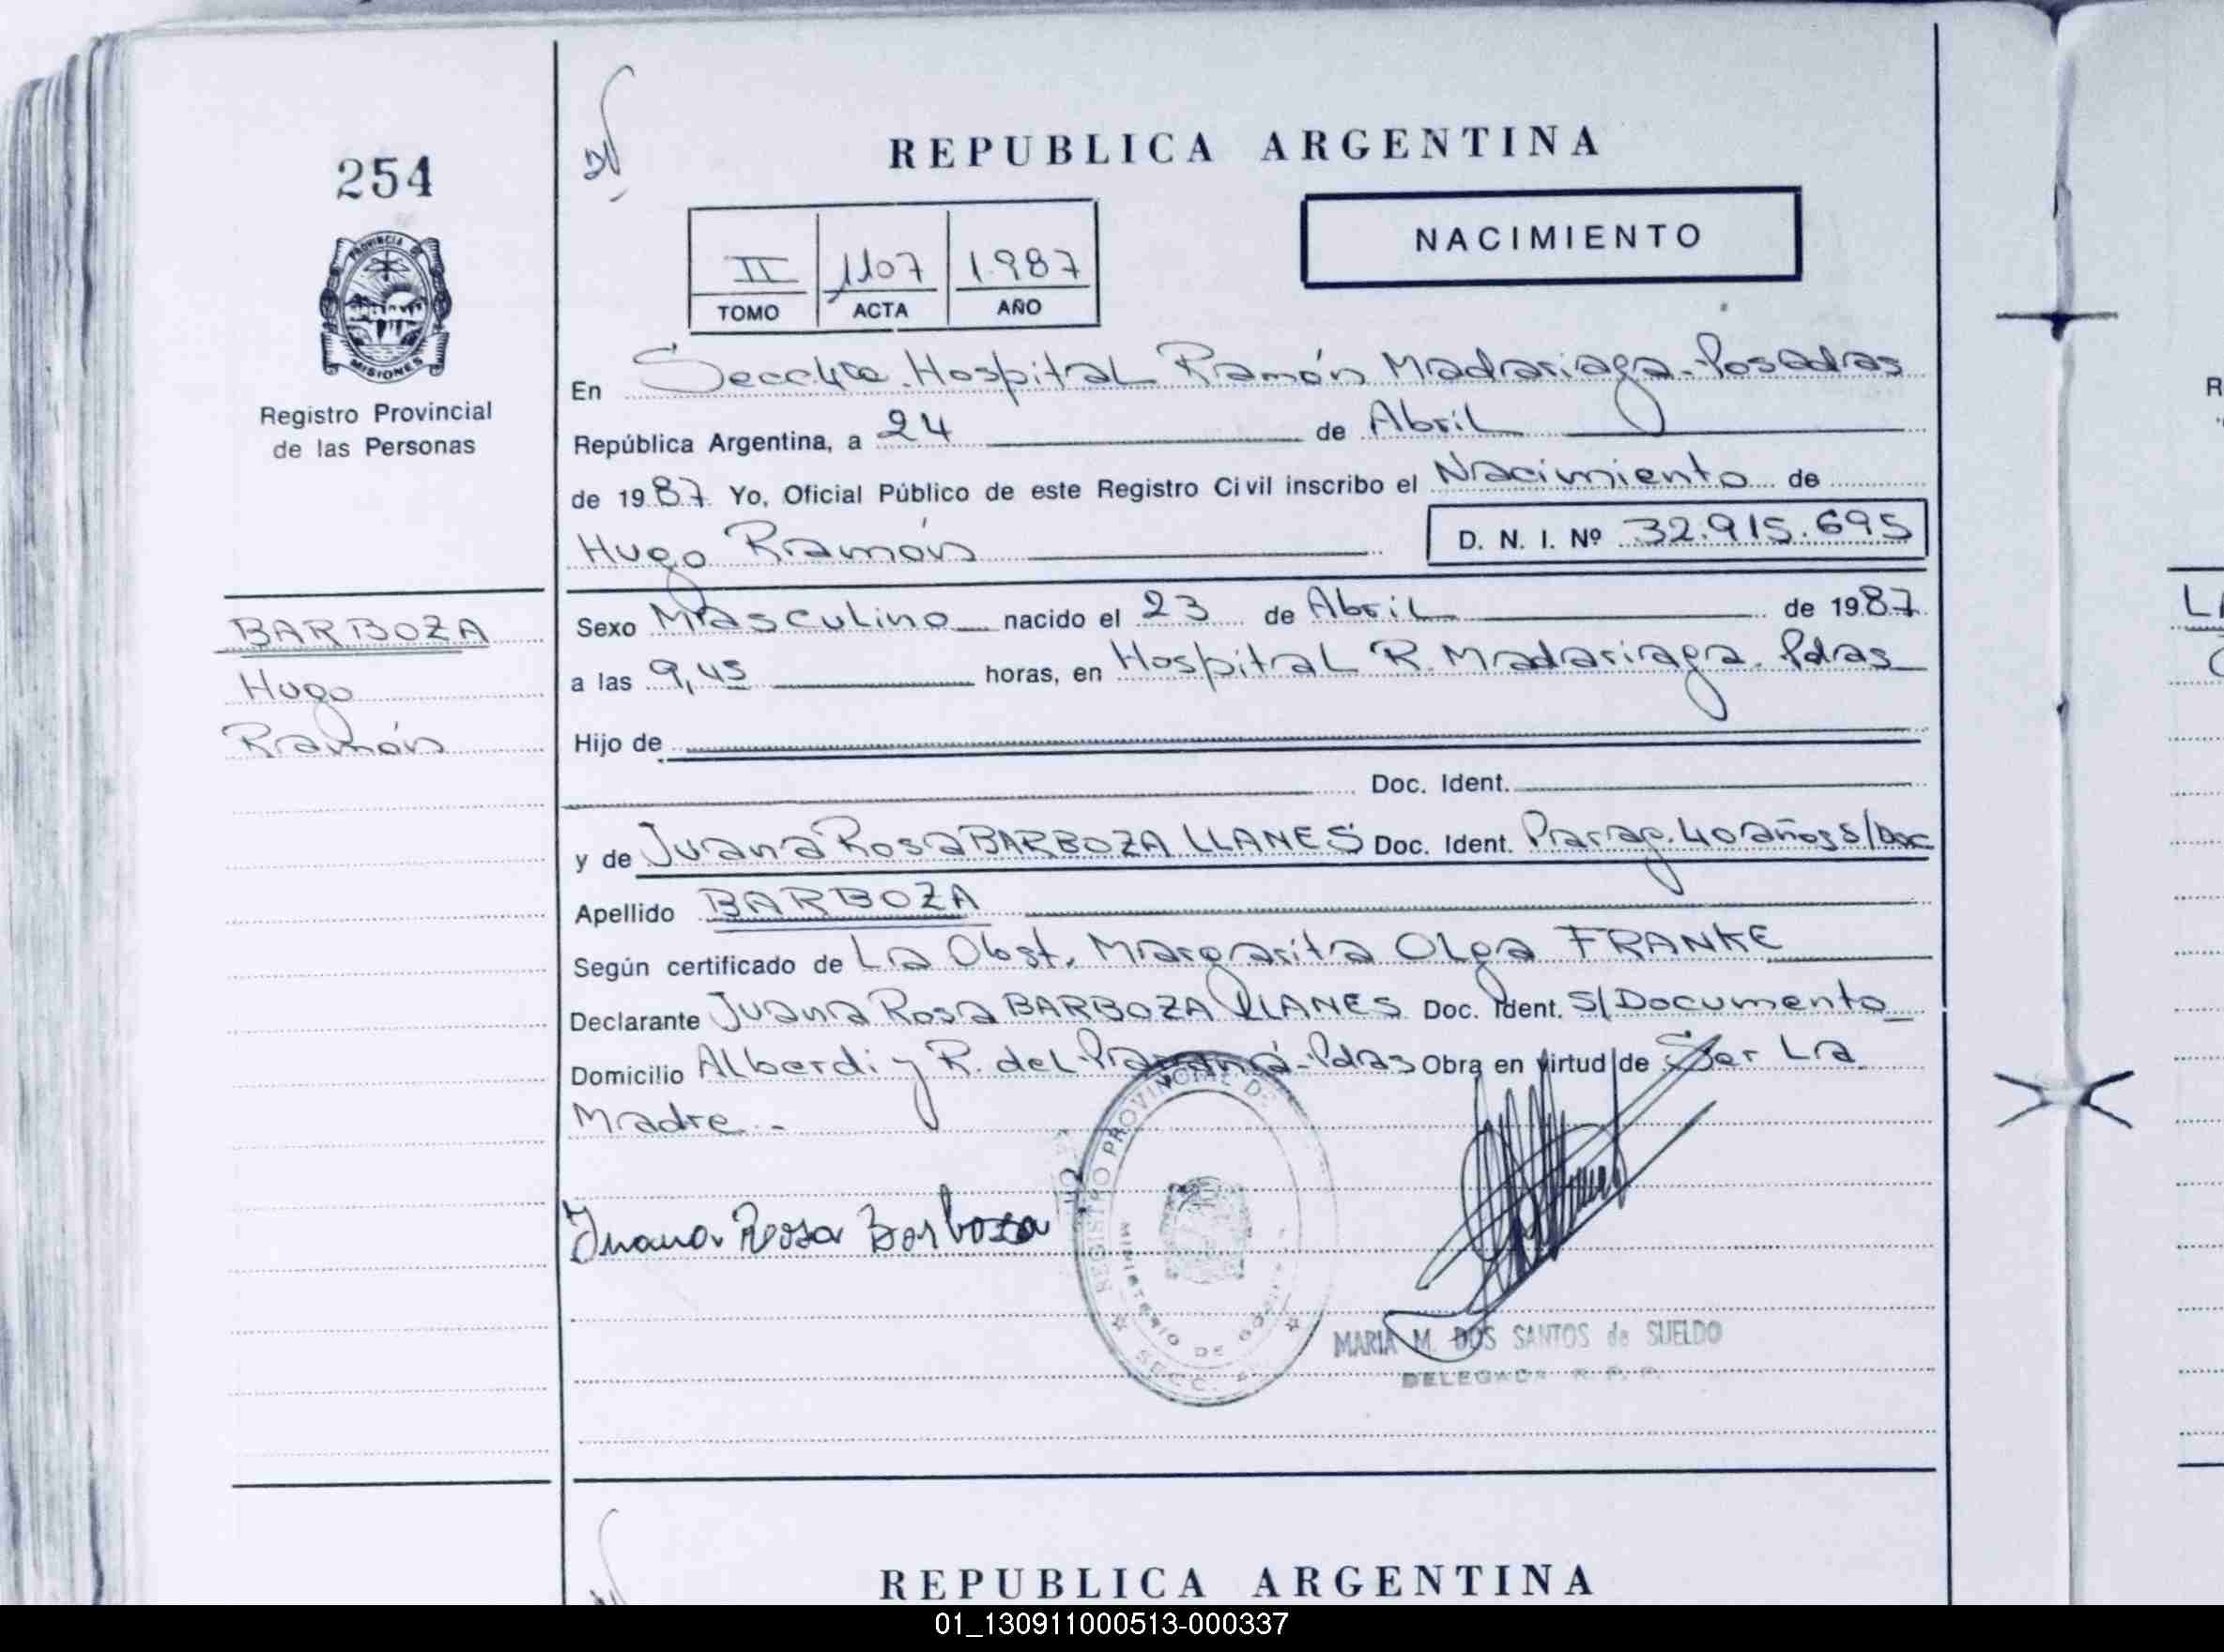 254
PROVINCIA DE
MISIONES
Registro Provincial
de las Personas
BARBOZA
Hugo
Ramón
REPUBLICA ARGENTINA
II 1107 1.987
TOMO ACTA AÑO
NACIMIENTO
En Hospital Ramón Madariaga-Posadas
República Argentina, a 24 de Abril
de 1987 Yo, Oficial Público de este Registro Civil inscribo el Nacimiento de
Hugo Ramón D. N. I. Nº 32.915.695
Sexo Masculino nacido el 23 de Abril de 1987
a las 9,45 horas, en Hospital R. Madariaga. Pdas
Hijo de
Doc. Ident.
y de Juana Rosa BARBOZA LLANES Doc. Ident. Parag. 40 años s/Doc
Apellido BARBOZA
Según certificado de La Obst. Margarita Olga FRANKE
Declarante Juana Rosa BARBOZA LLANES Doc. Ident. S/Documento
Domicilio Alberdi y R. del Paraná-Pdas Obra en virtud de Ser La
Madre.-
Juana Rosa Barboza
REGISTRO PROVINCIAL DE
MINISTERIO DE
SECC. 4
MARIA M. DOS SANTOS de SUELDO
DELEGADA R. P. P.
REPUBLICA ARGENTINA
01_130911000513-000337